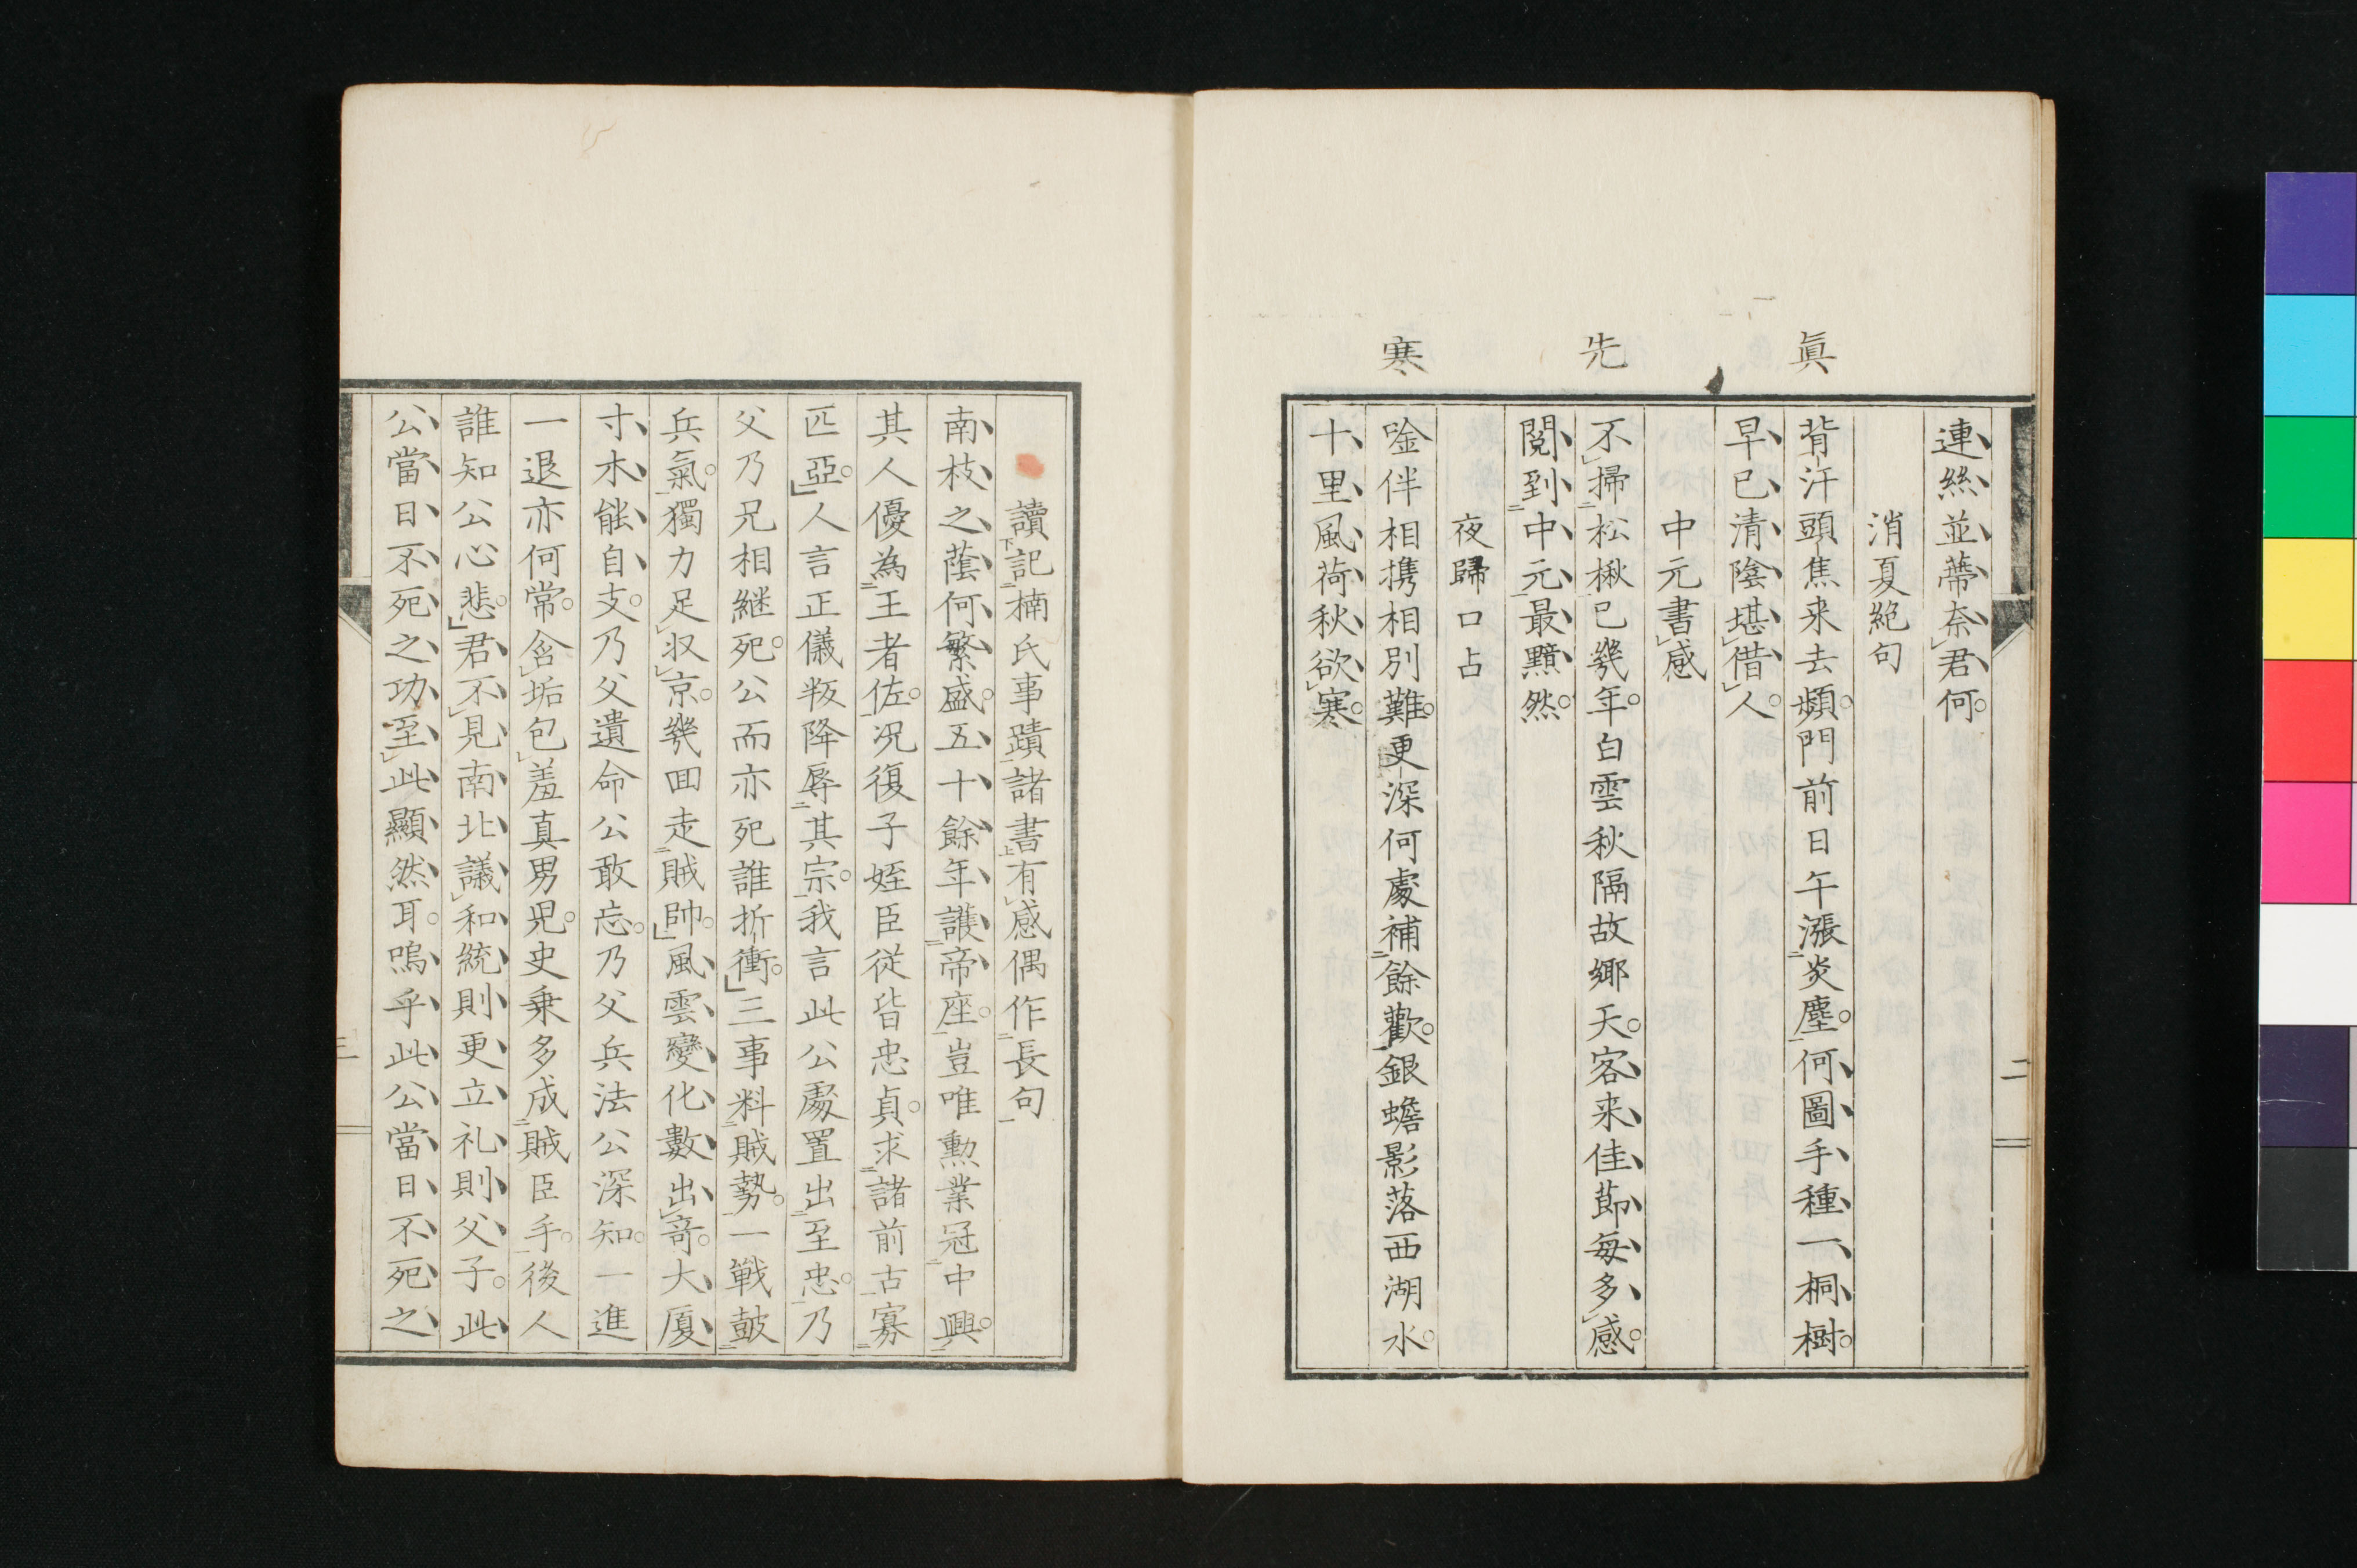 眞
先
寒
連絲並蔕奈君何
消夏絶句
背汗頭焦来去頻門前日午漲炎塵何圖手種一桐樹
早已清陰堪借人
中元書感
不掃松楸已幾年白雲秋隔故鄉天客来佳節每多感
閲到中元最黯然
夜歸口占
唫伴相携相別難更深何處補餘歡銀蟾影落西湖水
十里風荷秋欲寒
二
讀記楠氏事蹟諸書有感偶作長句
南枝之蔭何繁盛五十餘年護帝座豈唯勲業冠中興
其人優為王者佐况復子姪臣從皆忠貞求諸前古寡
匹亞人言正儀叛降辱其宗我言此公處置出至忠乃
父乃兄相継死公而亦死誰折衝三事料賊勢一戦鼓
兵氣獨力足収京幾回走賊帥風雲變化數出奇大厦
寸木能自支乃父遺命公敢忘乃父兵法公深知一進
一退亦何常含垢包羞真男児史乗多成賊臣手後人
誰知公心悲君不見南北議和統則更立礼則父子此
公當日不死之功至此顯然耳嗚乎此公當日不死之
三